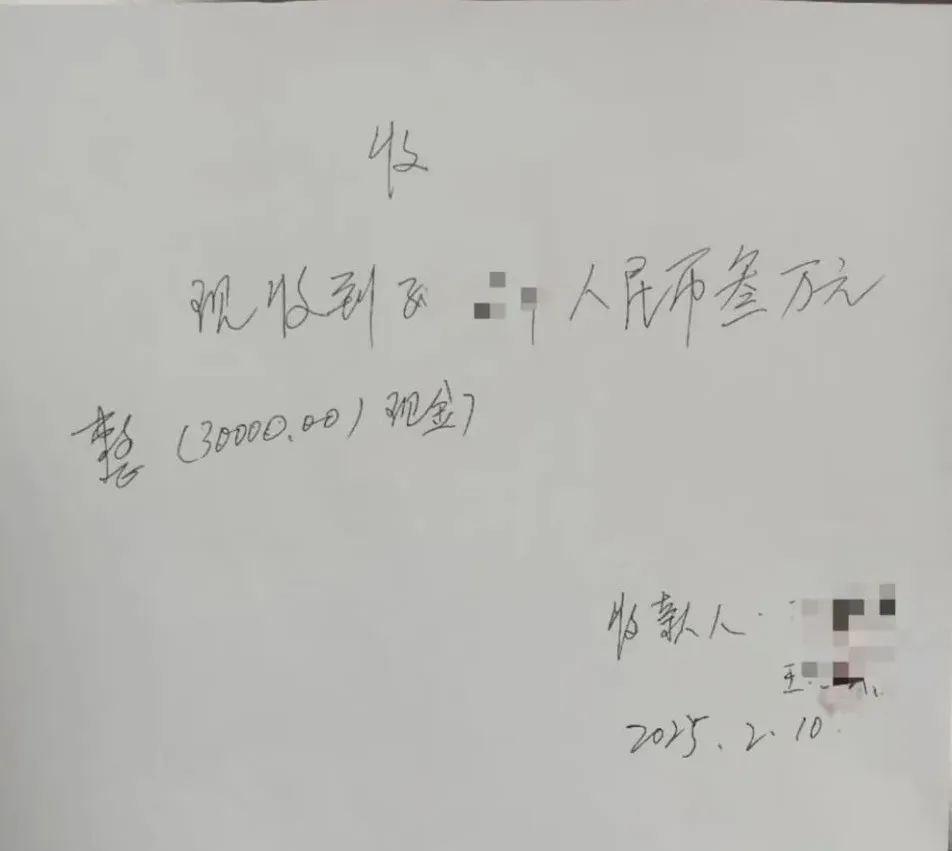 收
现收到 人民币叁万元
整(30000.00)现金
收款人
王
2025.2.10